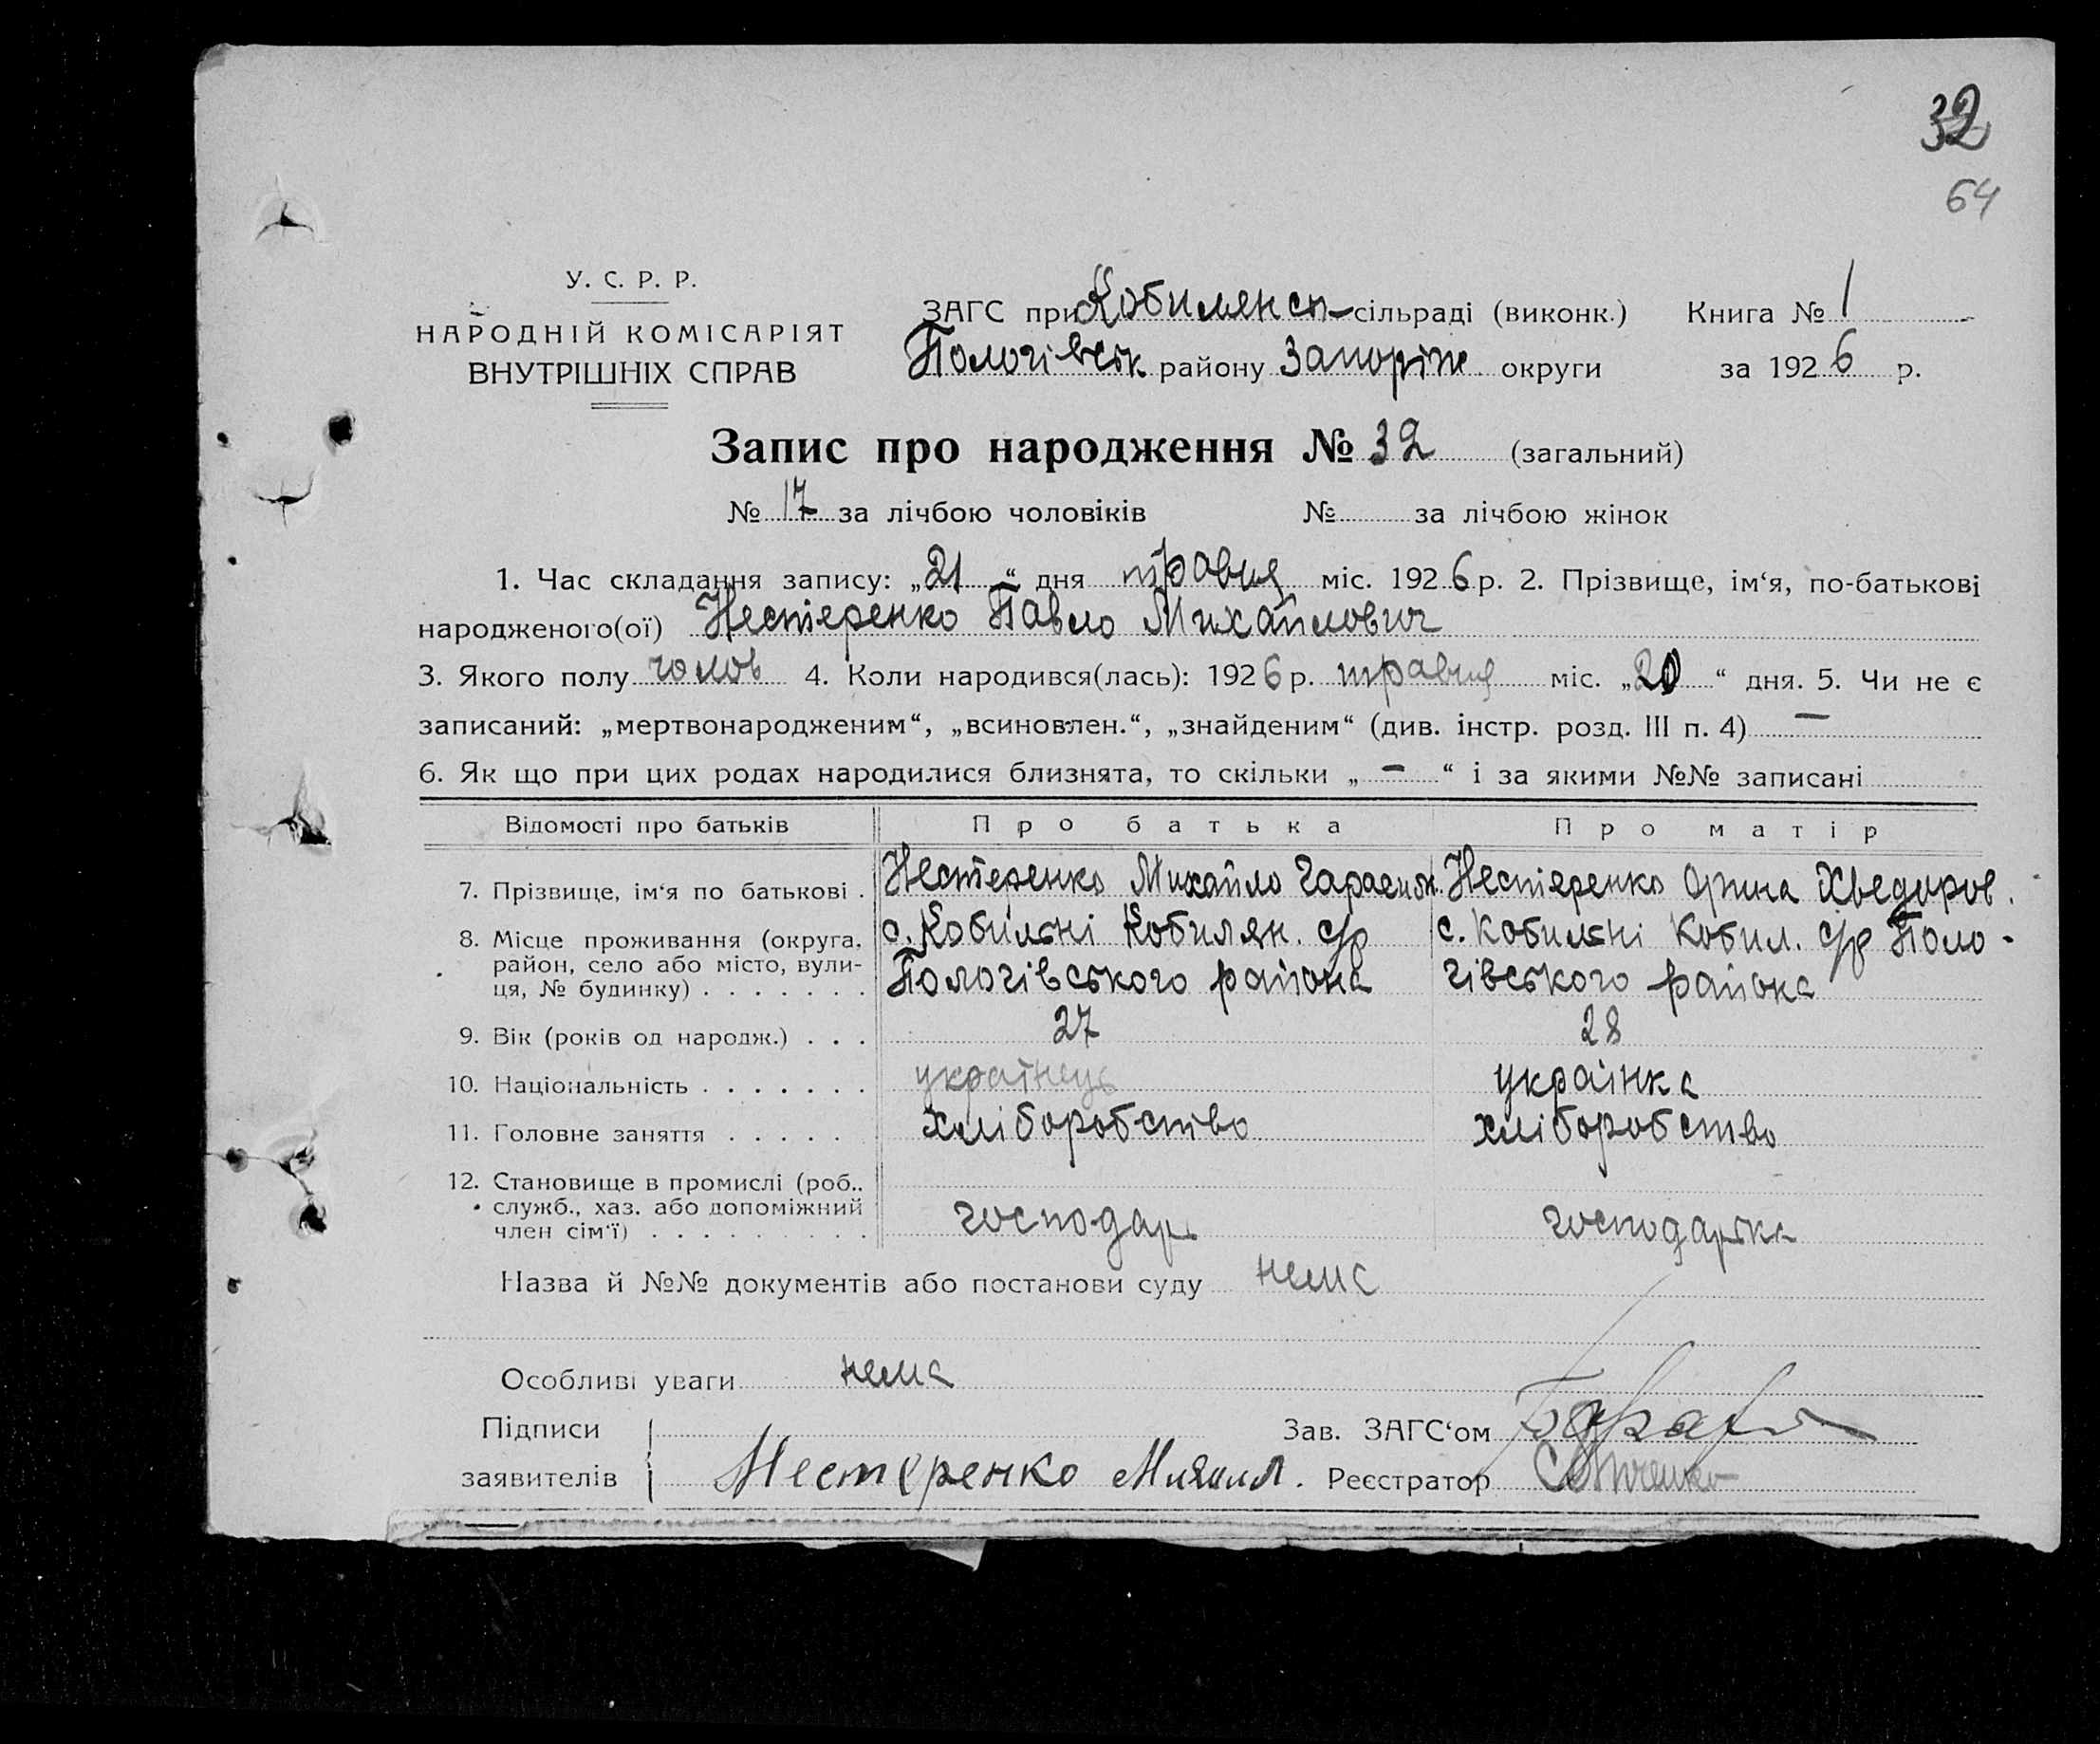 32
64
У. С. Р. Р.
НАРОДНІЙ КОМІСАРІЯТ
ВНУТРІШНІХ СПРАВ
ЗАГС при Кобилянськ сільраді (виконк.) Книга № 1
Пологівськ району Запоріж округи за 1926 р.
Запис про народження № 32 (загальний)
№ 17 за лічбою чоловіків № за лічбою жінок
1. Час складання запису: „21“ дня травня міс. 1926 р. 2. Прізвище, ім‘я, по-батькові
народженого(ої) Нестеренко Павло Михайлович
3. Якого полу чолов 4. Коли народився(лась): 1926 р. травня міс. „20“ дня. 5. Чи не є
записаний: „мертвонародженим“, „всиновлен.“, „знайденим“ (див. інстр. розд. III п. 4) —
6. Як що при цих родах народилися близнята, то скільки „ — “ і за якими №№ записані
Відомості про батьків Про батька Про матір
7. Прізвище, ім‘я по батькові . Нестеренко Михайло Нестеренко Орина Хведоров.
8. Місце проживання (округа, с. Кобильні Кобилян. с/р с. Кобильні Кобил. с/р Поло-
район, село або місто, вули- Пологівського района гівського района
ця, № будинку) . . . . . . .
9. Вік (років од народж.) . . . 27 28
10. Національність . . . . . . . українець українка
11. Головне заняття . . . . . хліборобство хліборобство
12. Становище в промислі (роб.,
служб., хаз. або допоміжний господарь господарька
член сім‘ї) . . . . . . . . .
Назва й №№ документів або постанови суду нема
Особливі уваги нема
Підписи Зав. ЗАГС‘ом
заявителів Нестеренко Михаил. Реєстратор